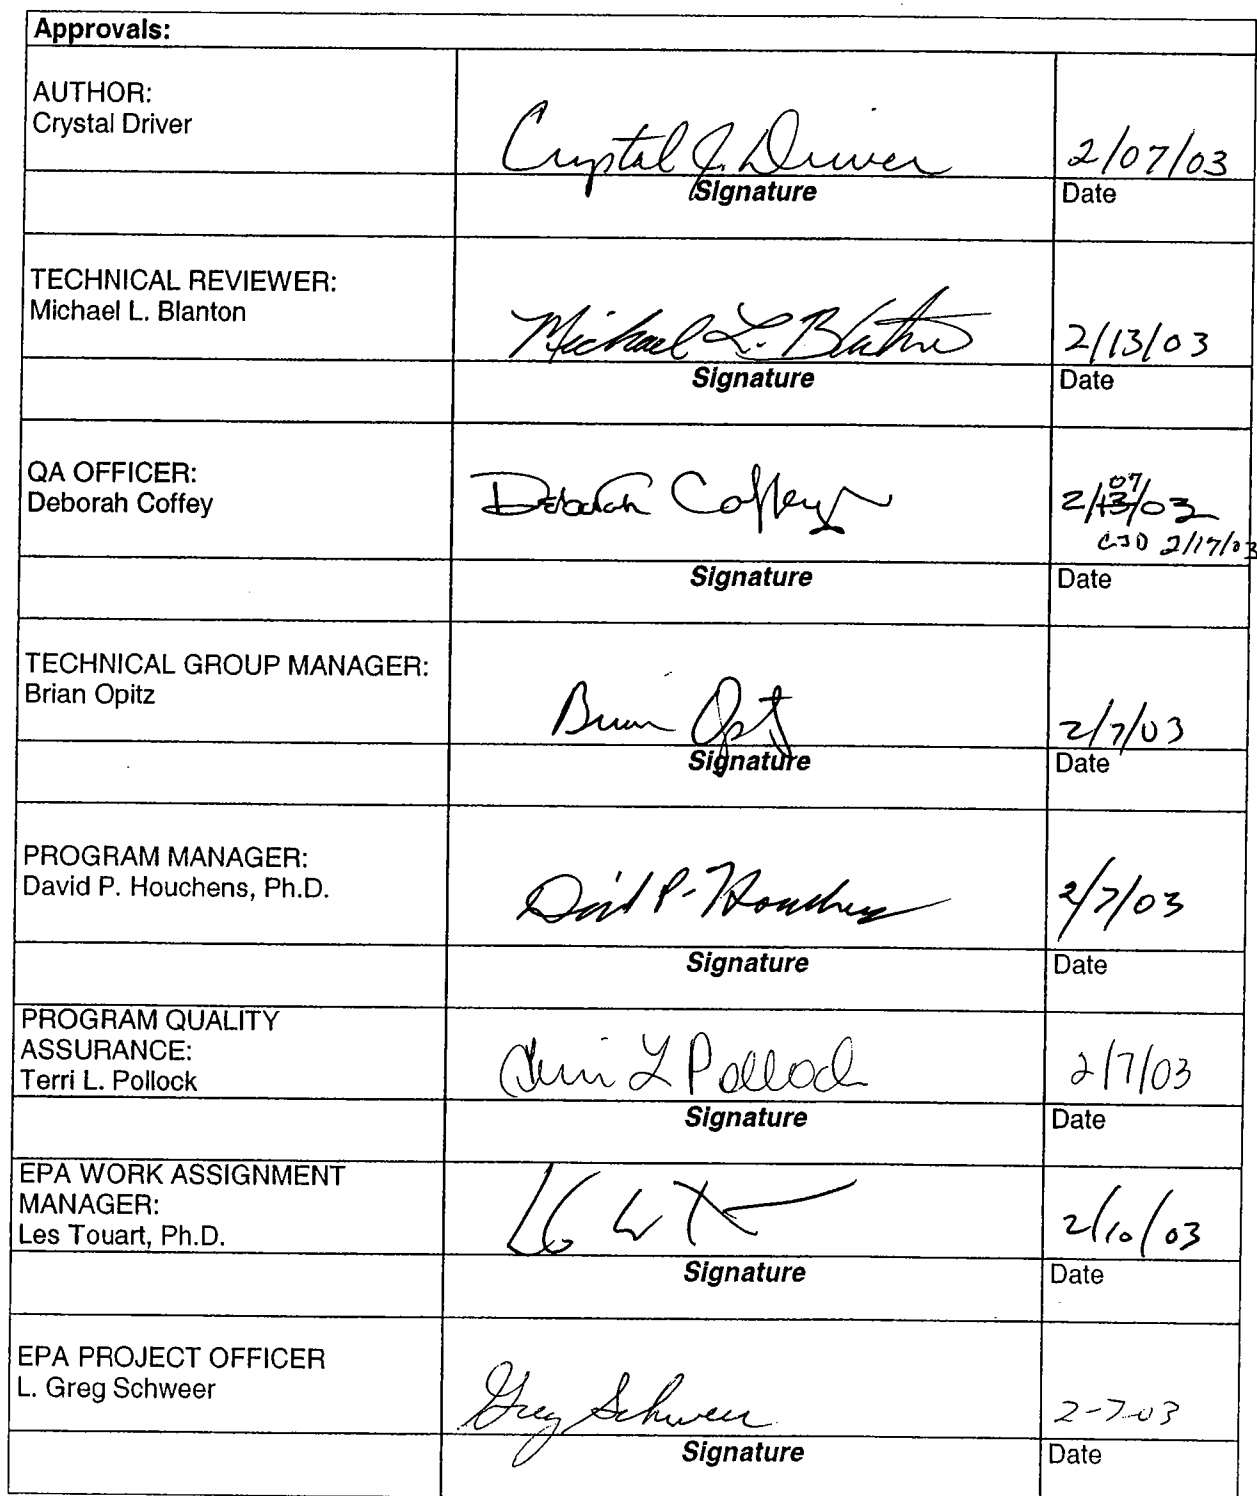 Approvals:
AUTHOR:
Crystal Driver
Crystal J. Driver
2/07/03
Signature
Date
TECHNICAL REVIEWER:
Michael L. Blanton
Michael L. Blanton
2/13/03
Signature
Date
QA OFFICER:
Deborah Coffey
Deborah Coffey
07
2/13/03
CJD 2/17/03
Signature
Date
TECHNICAL GROUP MANAGER:
Brian Opitz
Brian Opitz
2/7/03
Signature
Date
PROGRAM MANAGER:
David P. Houchens, Ph.D.
David P. Houchens
2/7/03
Signature
Date
PROGRAM QUALITY
ASSURANCE:
Terri L. Pollock
Terri L Pollock
2/7/03
Signature
Date
EPA WORK ASSIGNMENT
MANAGER:
Les Touart, Ph.D.
2/10/03
Signature
Date
EPA PROJECT OFFICER
L. Greg Schweer
Greg Schweer
2-7-03
Signature
Date